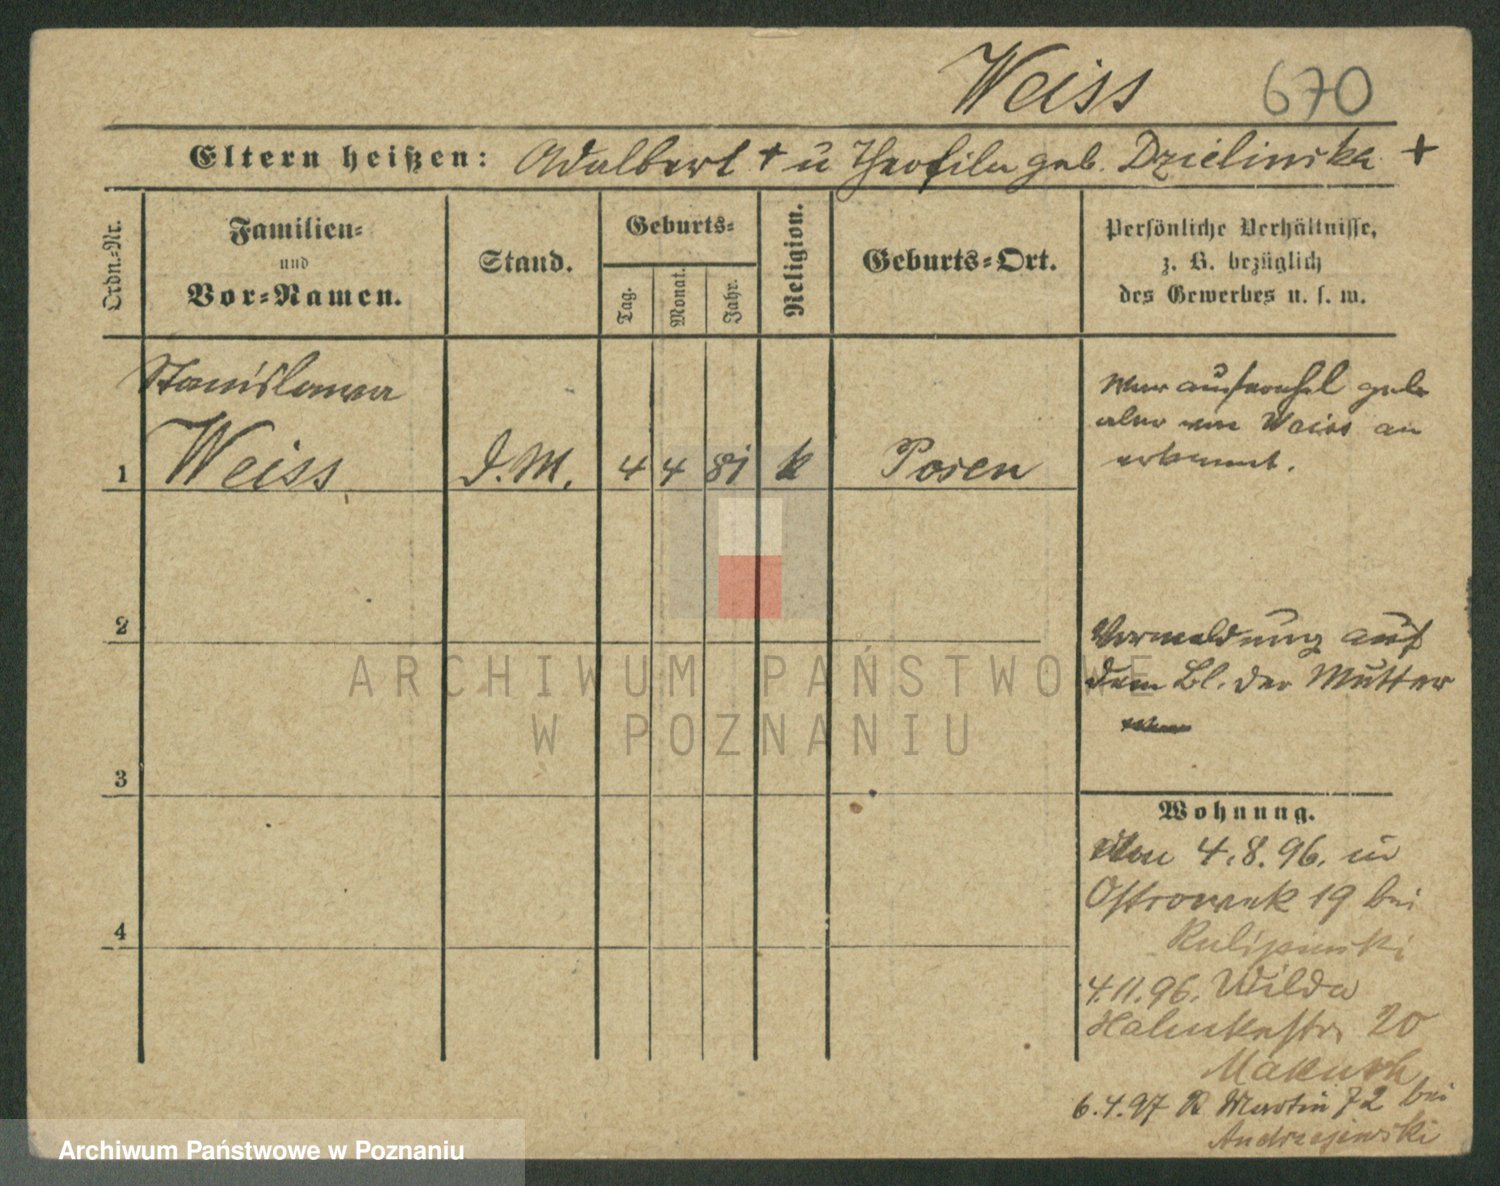 Weiss 670
Eltern heißen: Adalbert + u Theofila geb. Dzielinska +
Ordn.-Nr.
Familien-
und
Vor-Namen.
Stand.
Geburts-
Tag.
Monat.
Jahr.
Religion.
Geburts-Ort.
Persönliche Verhältnisse,
z. B. bezüglich
des Gewerbes u. s. w.
Stanislawa
1 Weiss D.M. 4 4 81 k Posen
war außerehel geb.
aber von Weiss an
erkannt.
2
Vormeldung auf
dem Bl. der Mutter
3
Wohnung.
4.8.96. in
Ostrowek 19 bei
4
4.11.96. Wilda
20
6.4.97 Martin 72 bei
Andrzejewski
ARCHIWUM PAŃSTWOWE
W POZNANIU
Archiwum Państwowe w Poznaniu